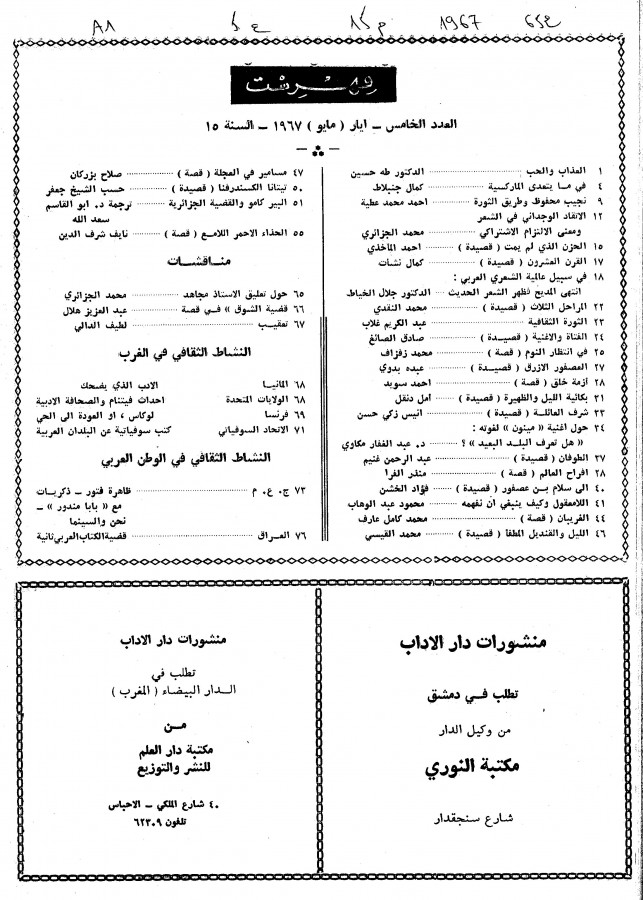 م١٥ 1967 ع5
فهرست
العدد الخامس – ايار ( مايو ) ١٩٦٧ – السنة ١٥
١ العذاب والحب ........ الدكتور طه حسين
٤ في ما يتعدى الماركسية ........ كمال جنبلاط
٩ نجيب محفوظ وطريق الثورة ........ احمد محمد عطية
١٢ الانقاد الوجداني في الشعر
ومعنى الالتزام الاشتراكي ........ محمد الجزائري
١٥ الحزن الذي لم يمت ( قصيدة ) ........ احمد المأخذي
١٧ القرن العشرون ( قصيدة ) ........ كمال نشات
١٨ في سبيل عالمية الشعري العربي :
انتهى المديح فظهر الشعر الحديث ........ الدكتور جلال الخياط
٢٢ المراحل الثلاث ( قصيدة ) ........ محمد النقدي
٢٣ الثورة الثقافية ........ عبد الكريم غلاب
٢٤ الفتاة والاغنية ( قصيدة ) ........ صادق الصائغ
٢٥ في انتظار النوم ( قصة ) ........ محمد زفزاف
٢٧ العصفور الازرق ( قصيدة ) ........ عبده بدوي
٢٨ ازمة خلق ( قصة ) ........ احمد سويد
٣١ بكائية الليل والظهيرة ( قصيدة ) ........ امل دنقل
٣٣ شرف العائلة ( قصيدة ) ........ انيس زكي حسن
٣٤ حول اغنية « مينون » لغوته :
« هل تعرف البلد البعيد » ؟ ........ د. عبد الغفار مكاوي
٣٧ الطوفان ( قصيدة ) ........ عبد الرحمن غنيم
٣٨ افراح العالم ( قصة ) ........ منذر الفرا
٤٠ الى سلام بن عصفور ( قصيدة ) ........ فؤاد الخشن
٤١ اللامعقول وكيف ينبغي ان نفهمه ........ محمود عبد الوهاب
٤٤ الغريبان ( قصة ) ........ محمد كامل عارف
٤٦ الليل والقنديل المطفأ ( قصيدة ) ........ محمد القيسي
٤٧ مسامير في العجلة ( قصة ) ........ صلاح بزركان
٥٠ تيتانا الكسندرفنا ( قصيدة ) ........ حسب الشيخ جعفر
٥١ البير كامو والقضية الجزائرية ........ ترجمة د. ابو القاسم
سعد الله
٥٥ الحذاء الاحمر اللامع ( قصة ) ........ نايف شرف الدين
مناقشات
٦٥ حول تعليق الاستاذ مجاهد ........ محمد الجزائري
٦٦ قضية الشوق » في قصة ........ عبد العزيز هلال
٦٧ تعقيب ........ لطيف الدالي
النشاط الثقافي في الغرب
٦٨ المانيا الادب الذي يضحك
٦٨ الولايات المتحدة احداث فيتنام والصحافة الادبية
٦٩ فرنسا لوكاس ، او العودة الى الحي
٧١ الاتحاد السوفياتي كتب سوفياتية عن البلدان العربية
النشاط الثقافي في الوطن العربي
٧٣ ج. ع. م ........ ظاهرة فتور – ذكريات
مع « بابا مندور » –
نحن والسينما
٧٦ العراق ........ قضية الكتاب العربي ثانية
منشورات دار الاداب
تطلب في دمشق
من وكيل الدار
مكتبة النوري
شارع سنجقدار
منشورات دار الاداب
تطلب في
الدار البيضاء ( المغرب )
من
مكتبة دار العلم
للنشر والتوزيع
٤٠ شارع الملكي – الاحباس
تلفون ٦٢٣٠٩